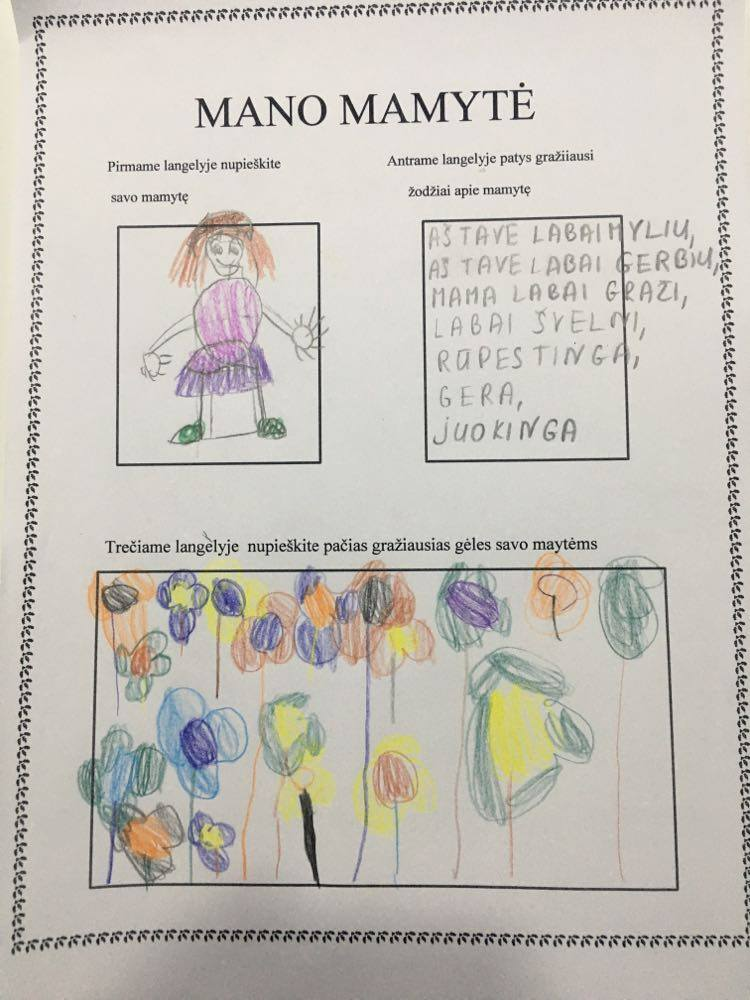 MANO MAMYTĖ
Pirmame langelyje nupieškite
savo mamytę
Antrame langelyje patys gražiiausi
žodžiai apie mamytę
AŠ TAVE LABAI MYLIU,
AŠ TAVE LABAI GERBIU,
MAMA LABAI GRAŽI,
LABAI ŠVELNI,
RŪPESTINGA,
GERA,
JUOKINGA
Trečiame langelyje nupieškite pačias gražiausias gėles savo maytėms